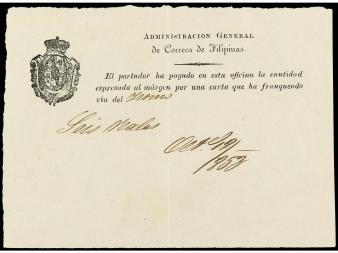 ADMINISTRACION GENERAL
de Correos de Filipinas.
El portador ha pagado en esta oficina la cantidad
expresada al márgen por una carta que ha franqueado
via del
Seis reales
Oct. 19/
1853